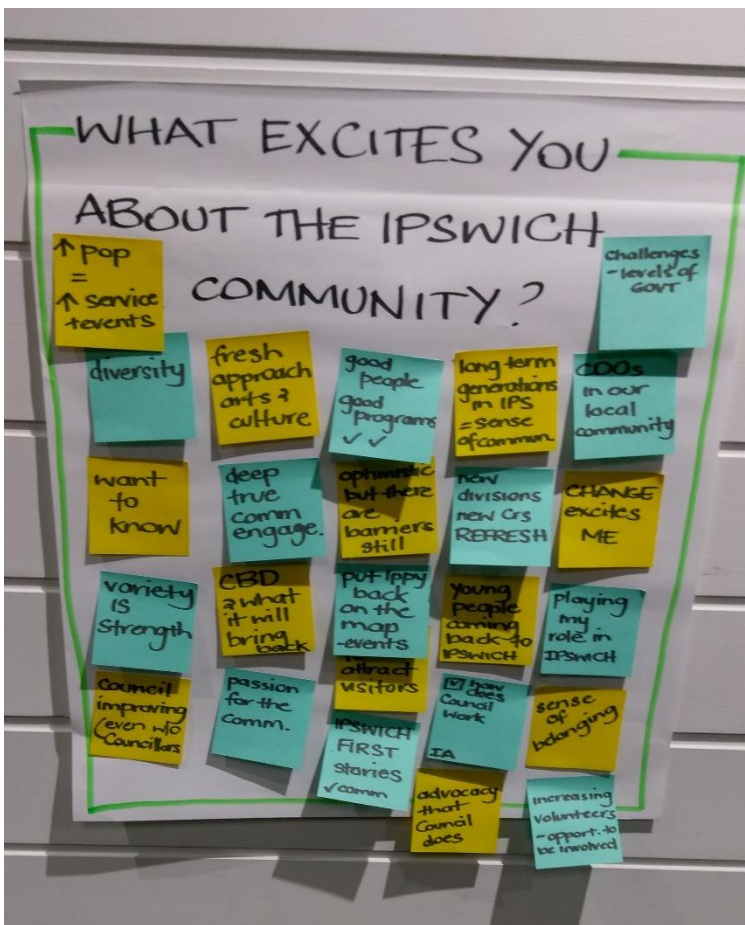 WHAT EXCITES YOU
ABOUT THE IPSWICH
COMMUNITY?
↑ pop
=
↑ service
+events
challenges
- levels of
GOVT
diversity
fresh
approach
arts &
culture
good
people
good
programs
✓✓
long term
generations
in IPS
= sense
of commun.
CDOs
in our
local
community
want
to
know
deep
true
comm
engage.
optimistic
but there
are
barriers
still
new
divisions
new Crs
REFRESH
CHANGE
excites
ME
variety
IS
strength
CBD
& what
it will
bring back
put Ippy
back
on the
map
-events
young
people
coming
back to
IPSWICH
playing
my
role in
IPSWICH
Council
improving
(even w/o
Councillors
passion
for the
comm.
attract
visitors
☑ how
does
Council
work
IA
sense
of
belonging
IPSWICH
FIRST
stories
✓comm
advocacy
that
Council
does
increasing
volunteers
- opport. to
be involved